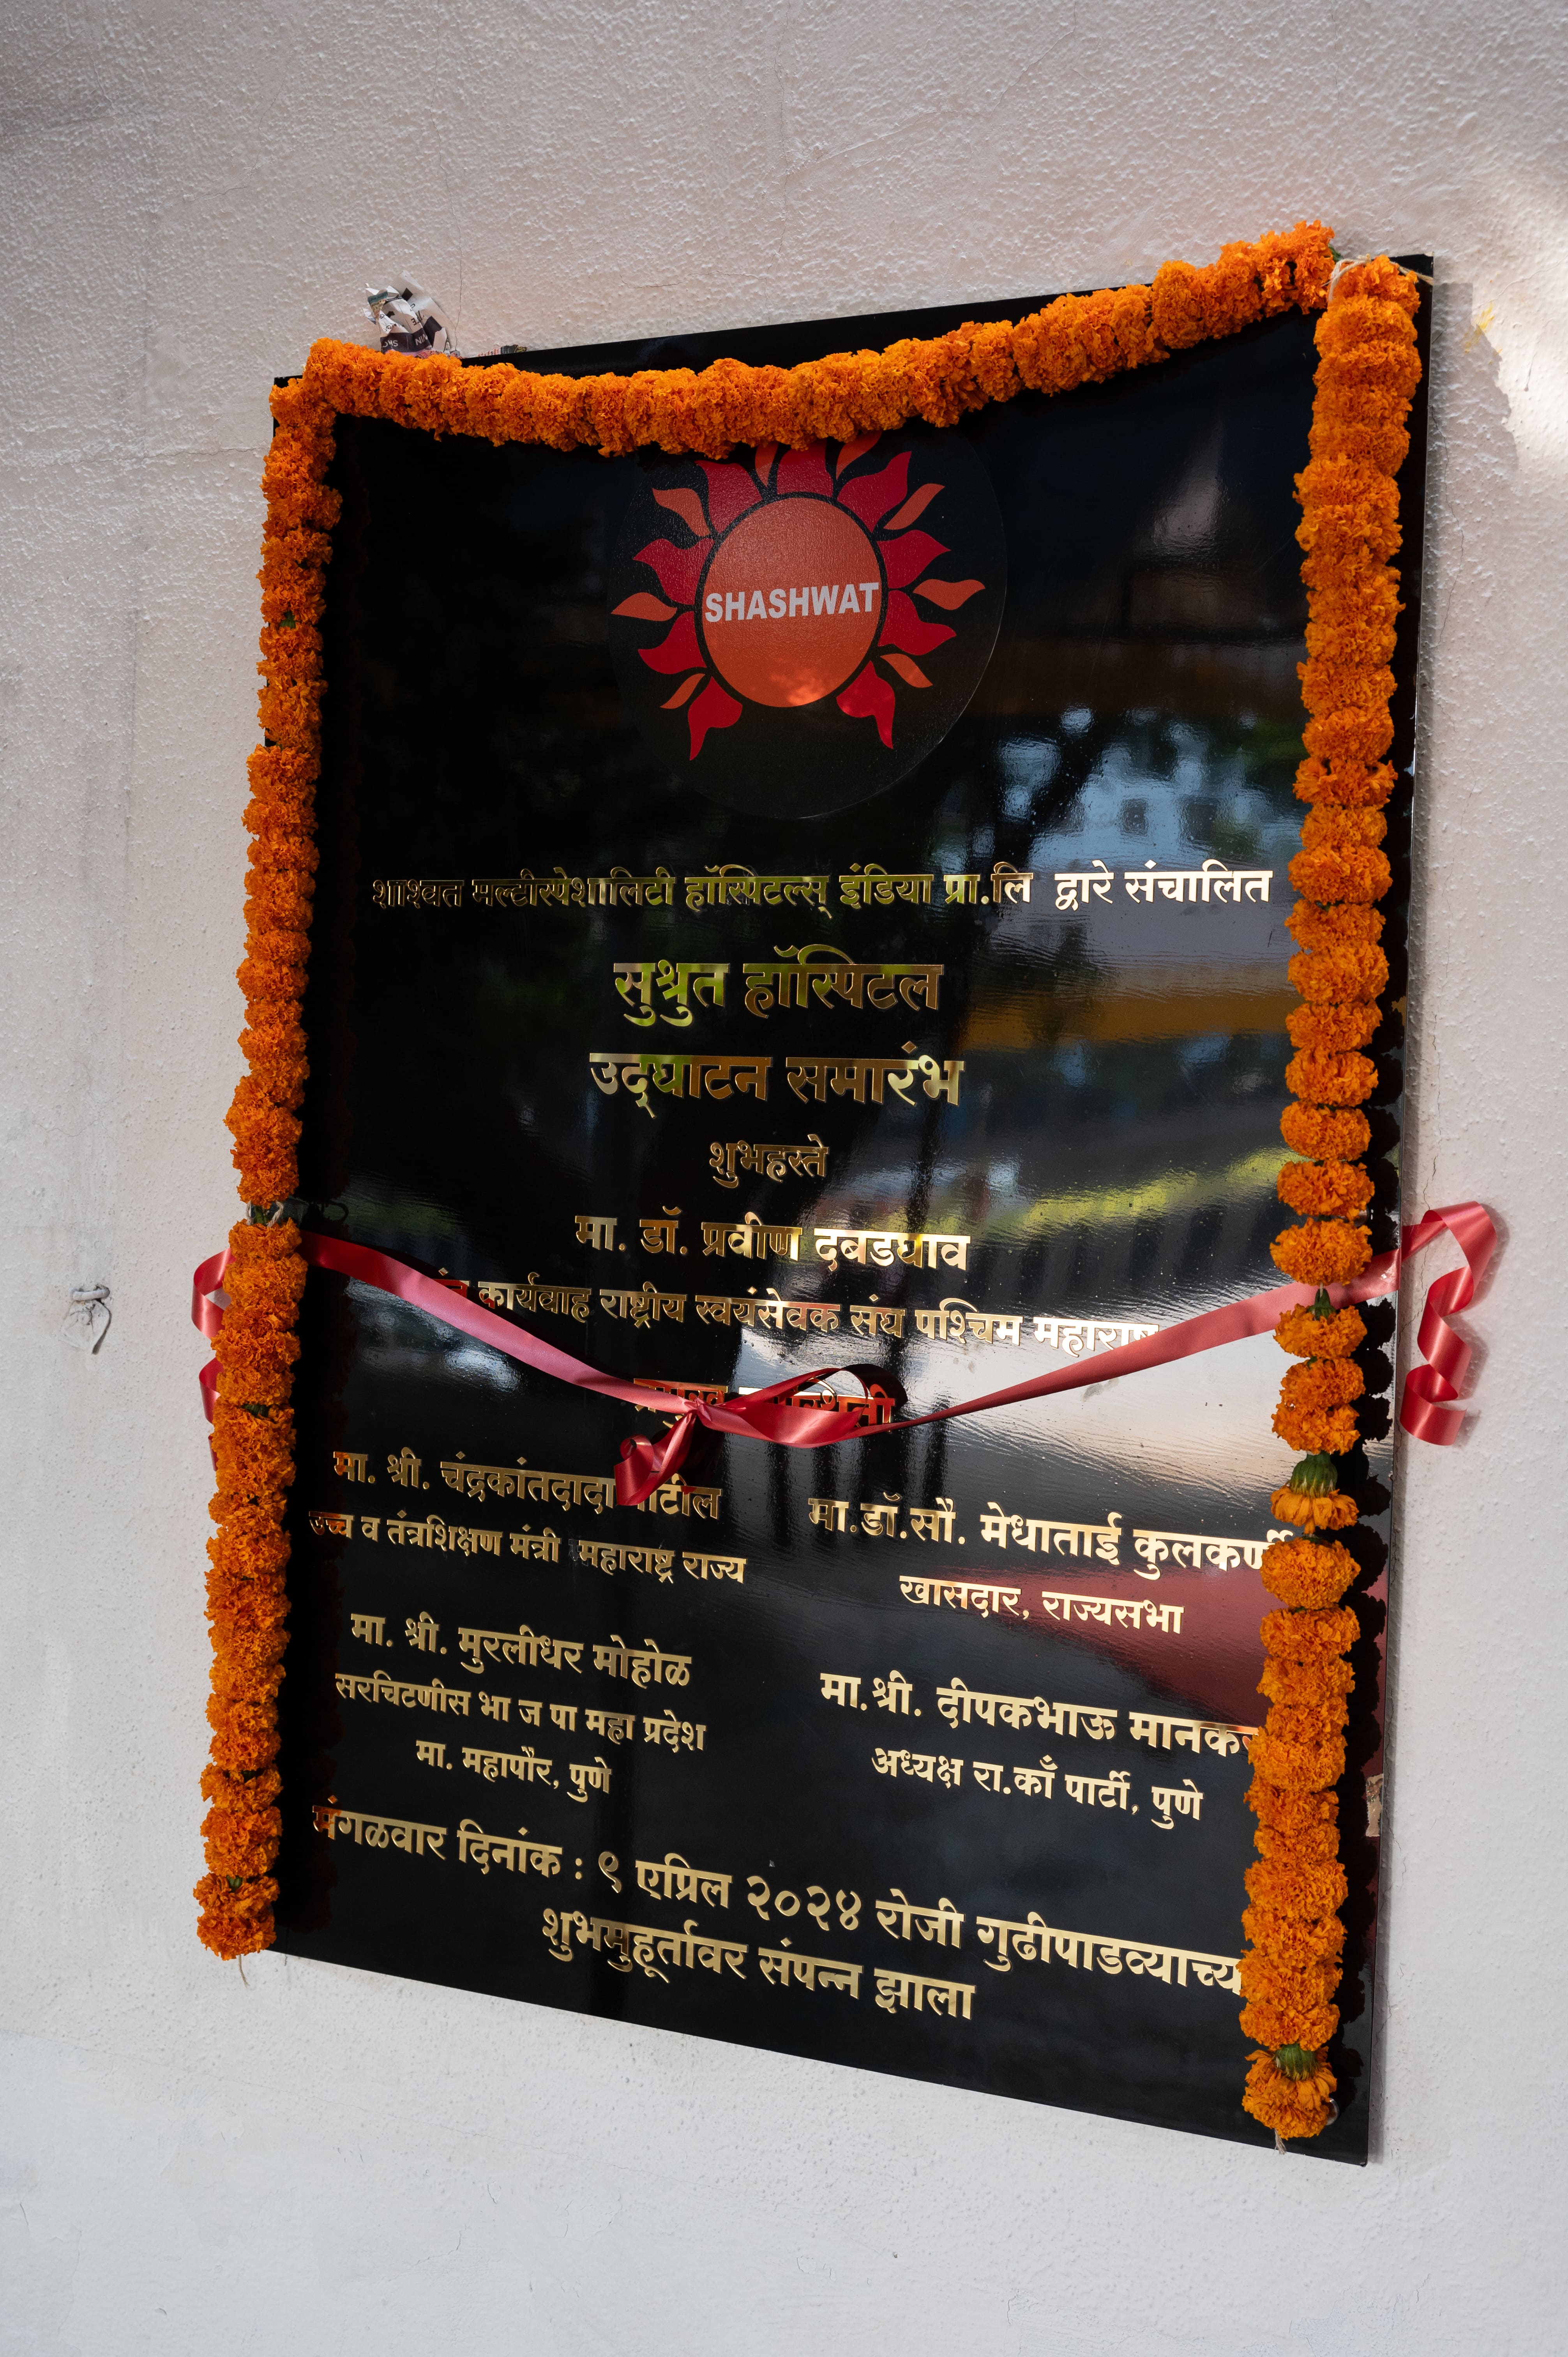 SHASHWAT
शाश्वत मल्टीस्पेशालिटी हॉस्पिटल्स् इंडिया प्रा.लि द्वारे संचालित
सुश्रुत हॉस्पिटल
उद्‌घाटन समारंभ
शुभहस्ते
मा. डॉ. प्रवीण दबडघाव
कार्यवाह राष्ट्रीय स्वयंसेवक संघ पश्चिम
मा. श्री. चंद्रकांतदादा
उच्च व तंत्रशिक्षण मंत्री महाराष्ट्र राज्य
मा.डॉ.सौ. मेधाताई कुलकर्णी
खासदार, राज्यसभा
मा. श्री. मुरलीधर मोहोळ
सरचिटणीस भा ज पा महा प्रदेश
मा. महापौर, पुणे
मा.श्री. दीपकभाऊ
अध्यक्ष रा.काँ पार्टी, पुणे
मंगळवार दिनांक : ९ एप्रिल २०२४ रोजी गुढीपाडव्याच्या
शुभमुहूर्तावर संपन्न झाला